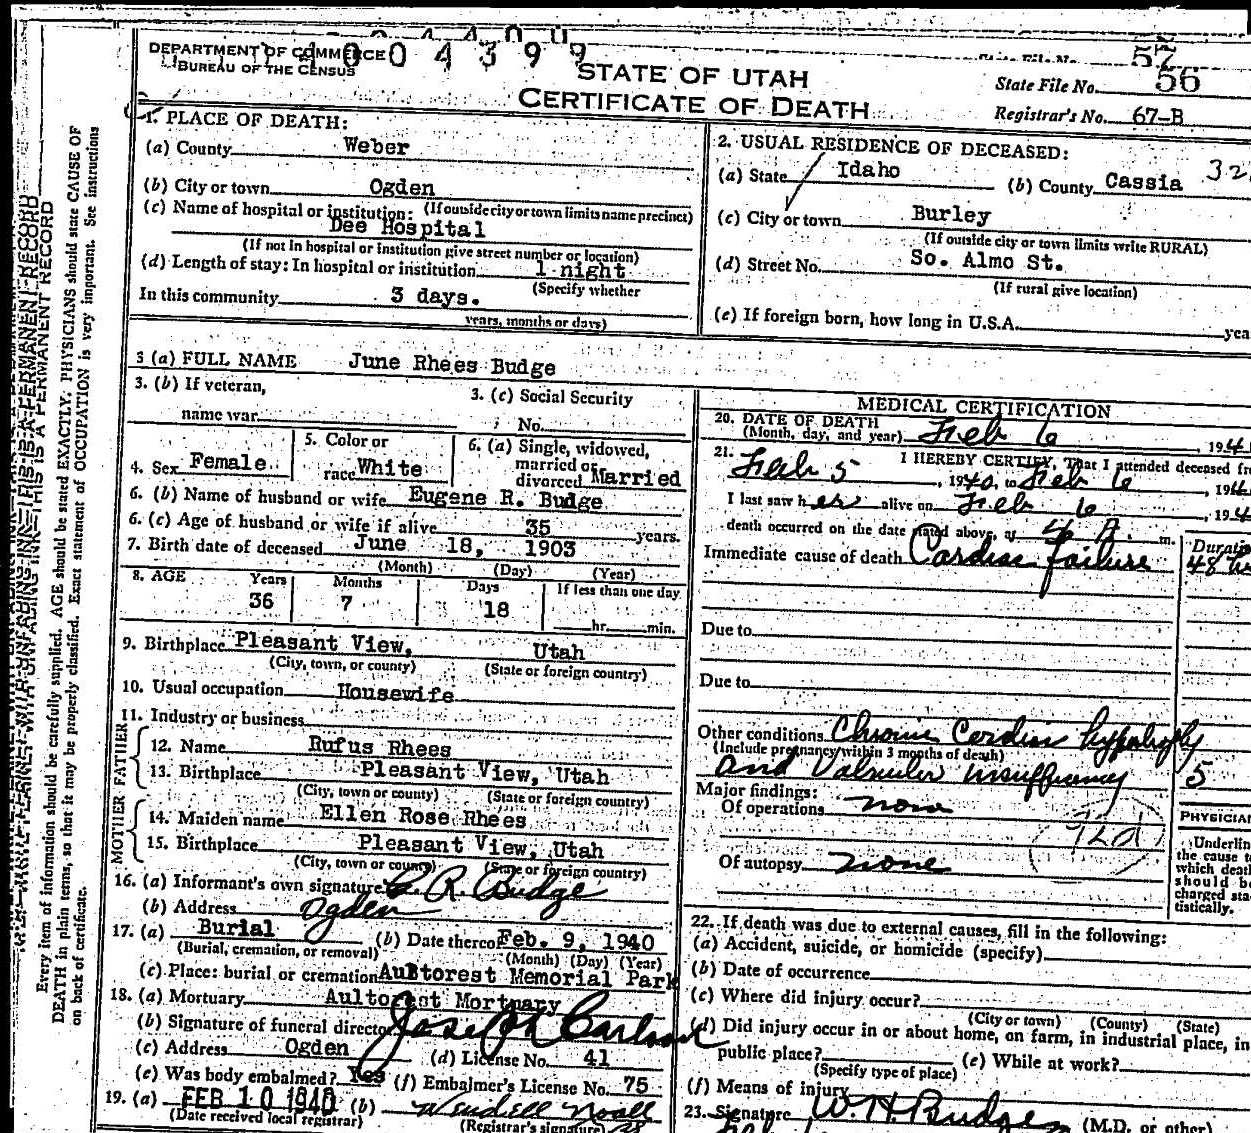 DEPARTMENT OF COMMERCE
BUREAU OF THE CENSUS
1004399
STATE OF UTAH
CERTIFICATE OF DEATH
57
State File No. 56
Registrar's No. 67-B
1. PLACE OF DEATH:
(a) County Weber
(b) City or town Ogden
(If outside city or town limits name precinct)
(c) Name of hospital or institution:
Dee Hospital
(If not in hospital or institution give street number or location)
(d) Length of stay: In hospital or institution 1 night
(Specify whether
In this community 3 days.
years, months or days)
2. USUAL RESIDENCE OF DECEASED:
(a) State Idaho (b) County Cassia
(c) City or town Burley
(If outside city or town limits write RURAL)
(d) Street No. So. Almo St.
(If rural give location)
(e) If foreign born, how long in U.S.A. yea
3 (a) FULL NAME June Rhees Budge
3. (b) If veteran,
name war
3. (c) Social Security
No.
4. Sex Female
5. Color or
race White
6. (a) Single, widowed,
married or
divorced Married
6. (b) Name of husband or wife Eugene R. Budge
6. (c) Age of husband or wife if alive 35 years.
7. Birth date of deceased June 18, 1903
(Month) (Day) (Year)
8. AGE Years Months Days If less than one day
36 7 18 hr. min.
9. Birthplace Pleasant View, Utah
(City, town, or county) (State or foreign country)
10. Usual occupation Housewife
11. Industry or business
FATHER
12. Name Rufus Rhees
13. Birthplace Pleasant View, Utah
(City, town or county) (State or foreign country)
MOTHER
14. Maiden name Ellen Rose Rhees
15. Birthplace Pleasant View, Utah
(City, town or county) (State or foreign country)
16. (a) Informant's own signature E. R. Budge
(b) Address Ogden
17. (a) Burial (b) Date thereof Feb. 9, 1940
(Burial, cremation, or removal) (Month) (Day) (Year)
(c) Place: burial or cremation Aultorest Memorial Park
18. (a) Mortuary Aultorest Mortuary
(b) Signature of funeral director Joseph Carlson
(c) Address Ogden (d) License No. 41
(e) Was body embalmed? Yes (f) Embalmer's License No. 75
19. (a) FEB 10 1940 (b) Wendell Noall
(Date received local registrar) (Registrar's signature)
MEDICAL CERTIFICATION
20. DATE OF DEATH
(Month, day, and year) Feb 6, 194
21. I HEREBY CERTIFY, That I attended deceased fr
Feb 5, 1940, to Feb 6, 194
I last saw her alive on Feb 6, 194
death occurred on the date stated above, at 4 A. m.
Immediate cause of death Cardiac failure
Duratio
48
Due to
Due to
Other conditions Chronic Cardiac hypertrophy
(Include pregnancy within 3 months of death)
and Valvular insufficiency 5
Major findings:
Of operations none
Of autopsy none
PHYSICIAN
Underlin
the cause to
which death
should be
charged sta-
tistically.
22. If death was due to external causes, fill in the following:
(a) Accident, suicide, or homicide (specify)
(b) Date of occurrence
(c) Where did injury occur?
(City or town) (County) (State)
(d) Did injury occur in or about home, on farm, in industrial place, in
public place? (e) While at work?
(Specify type of place)
(f) Means of injury
23. Signature W. H. Budge (M.D. or other)
Every item of information should be carefully supplied. AGE should be stated EXACTLY. PHYSICIANS should state CAUSE OF
DEATH in plain terms, so that it may be properly classified. Exact statement of OCCUPATION is very important. See instructions
on back of certificate.